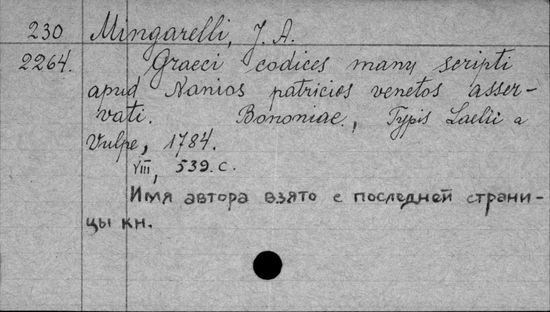 230 Mingarelli, J. A.
2264. Graeci codices manu scripti
apud Nanios patricios venetos asser-
vati. Bononiae, Typis Laelii a
Vulpe, 1784.
VIII, 539. с.
Имя автора взято с последней страни-
цы кн.